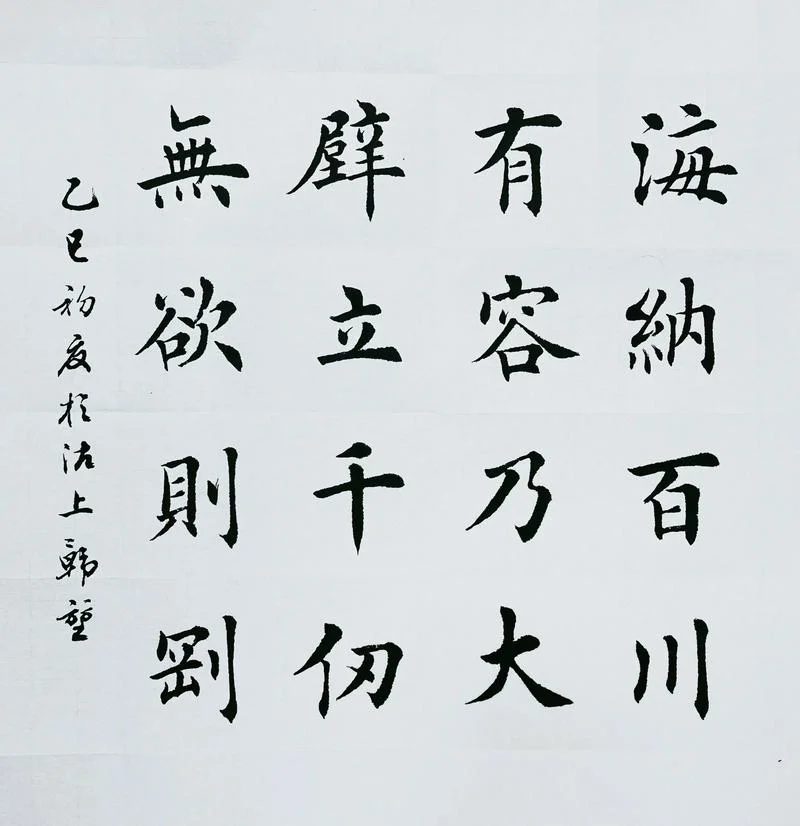 海納百川
有容乃大
壁立千仞
無欲則剛
乙巳初夏於沽上韩堃